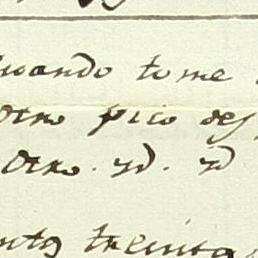 uando tome
Otro pico des
Otro. yd. yd
nto treinta